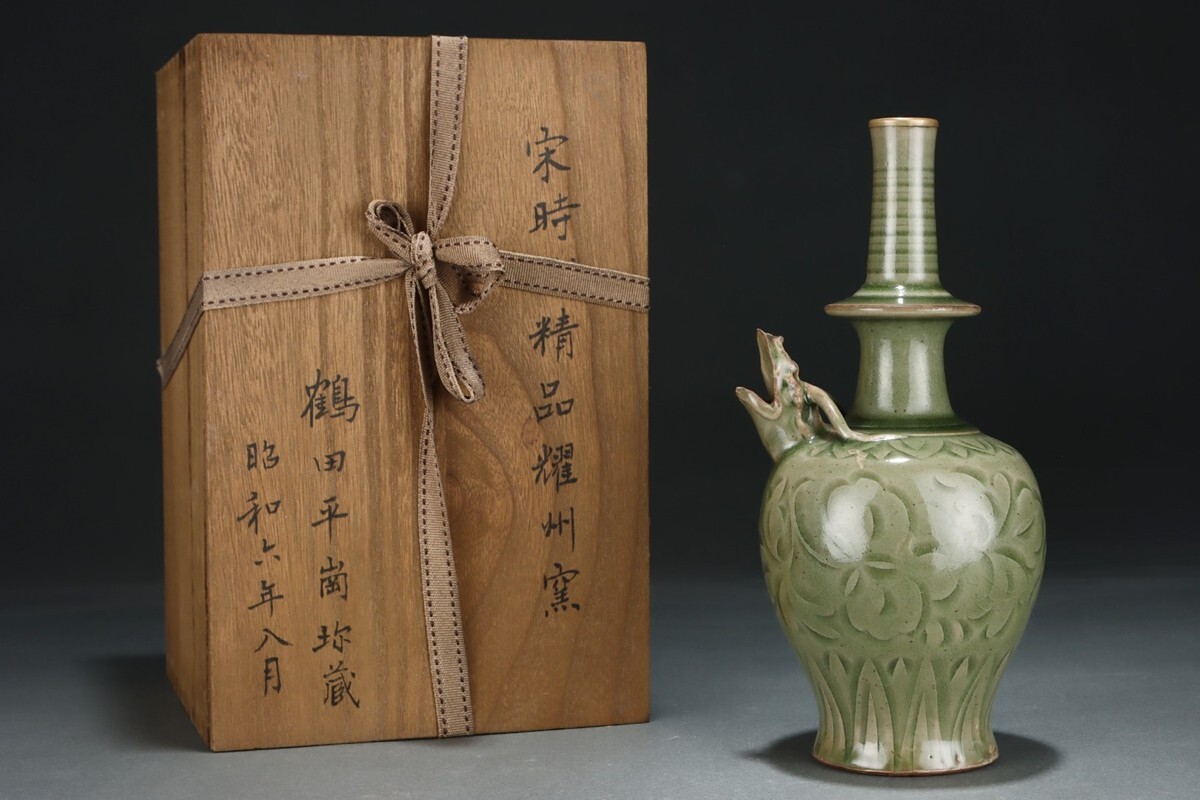 宋時精品耀州窯
鶴田平崗珎藏
昭和六年八月